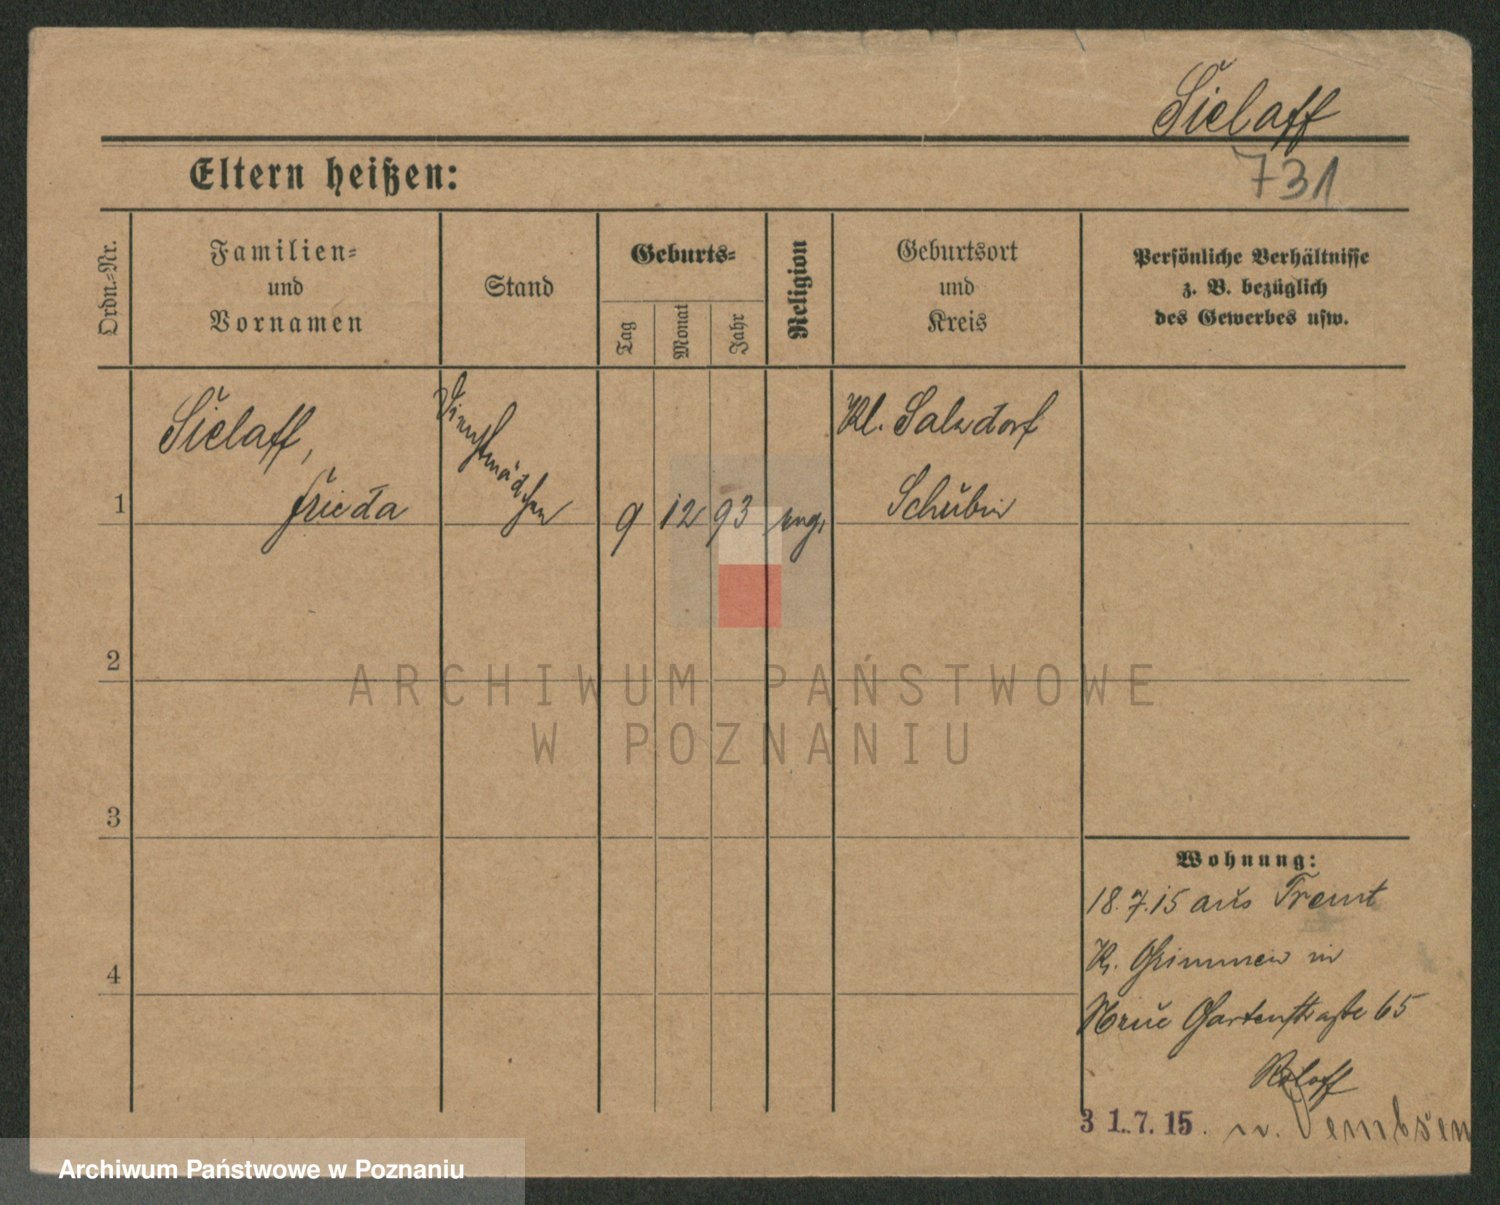 Sielaff
731
Eltern heißen:
Ordn.-Nr.
Familien-
und
Vornamen
Stand
Geburts-
Tag
Monat
Jahr
Religion
Geburtsort
und
Kreis
Persönliche Verhältnisse
z. B. bezüglich
des Gewerbes usw.
1
Sielaff,
Frieda
Dienstmädchen
9
12
93
evg.
Kl. Salzdorf
Schubin
2
3
4
ARCHIWUM PAŃSTWOWE
W POZNANIU
Wohnung:
18.7.15 aus
Kr. Grimmen in
Neue Gartenstraße 65
31.7.15. n.
Archiwum Państwowe w Poznaniu